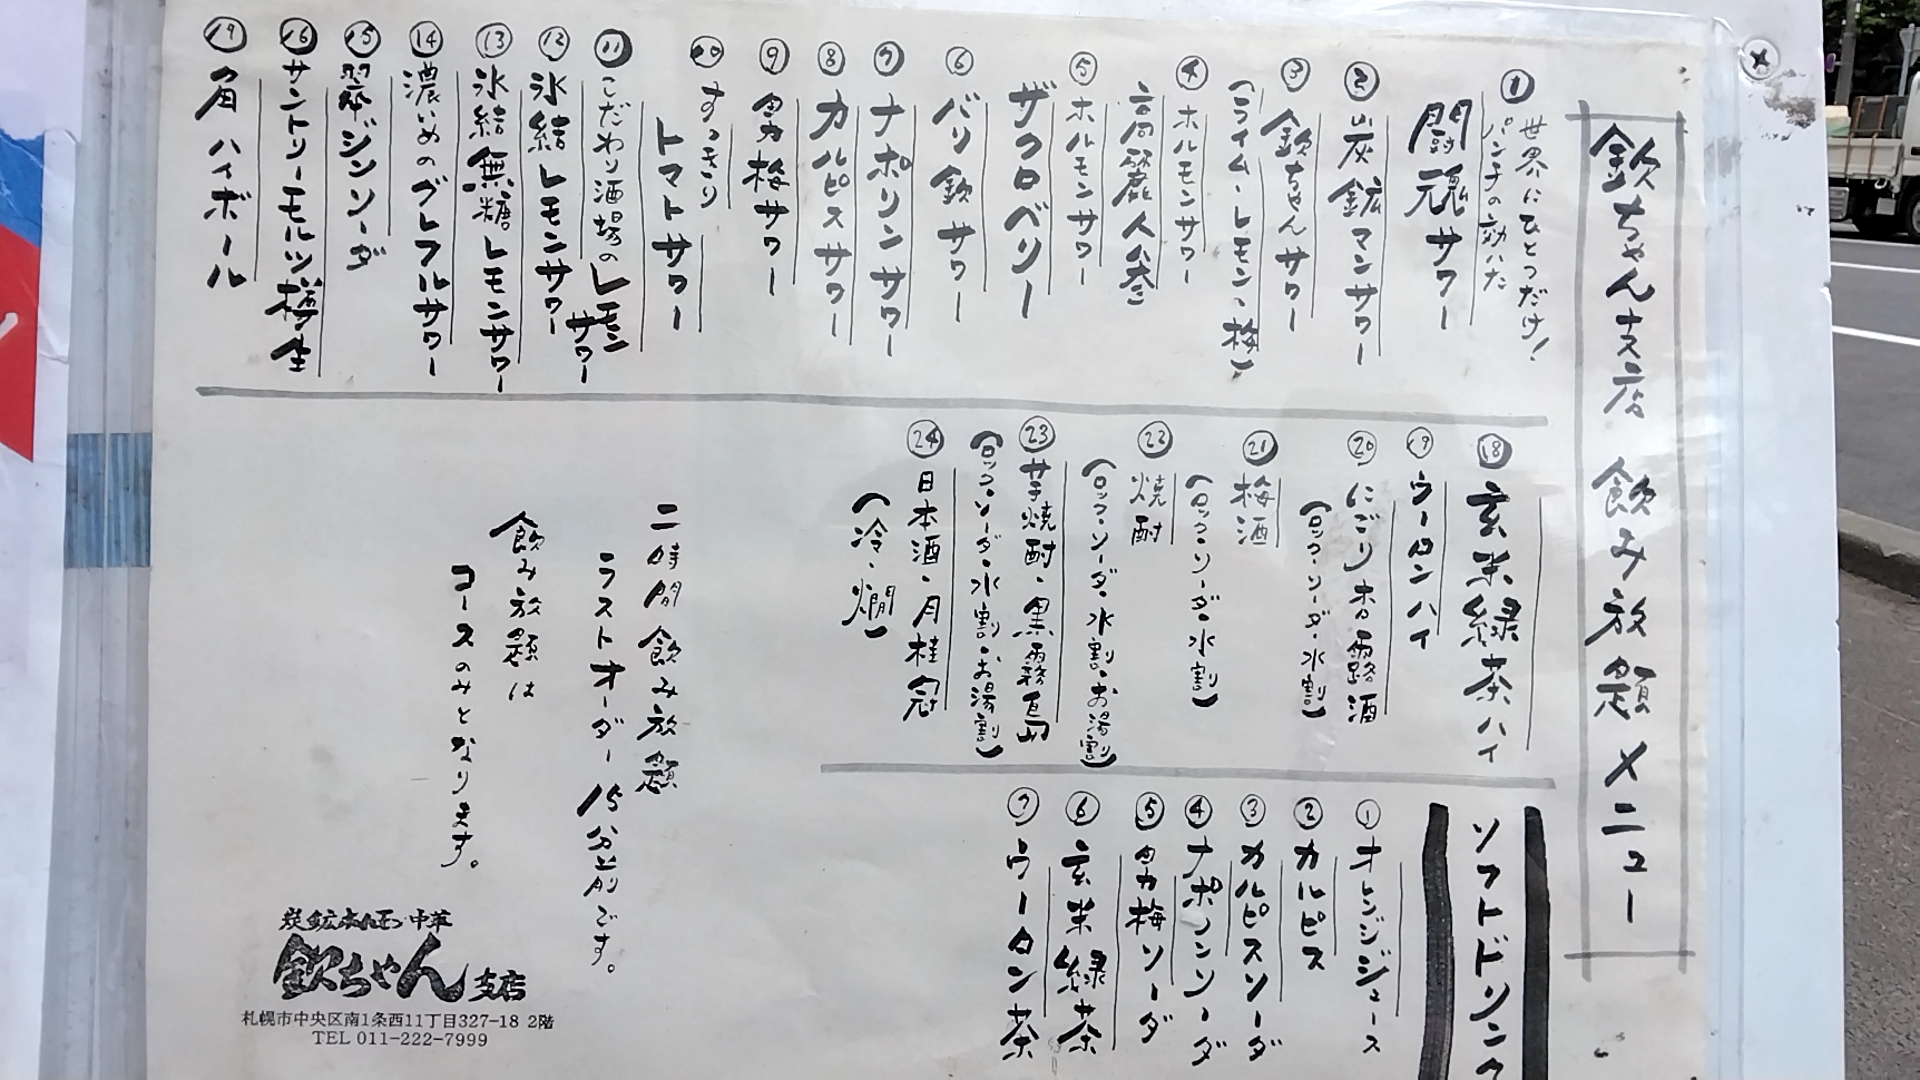 欽ちゃん支店 飲み放題メニュー
① 世界にひとつだけ!
パンチの効いた
闘魂サワー
② 炭鉱マンサワー
③ 欽ちゃんサワー
(ライム・レモン・梅)
④ ホルモンサワー
高麗人参
⑤ ホルモンサワー
ザクロベリー
⑥ バリ欽サワー
⑦ ナポリンサワー
⑧ カルピスサワー
⑨ 男梅サワー
⑩ すっきり
トマトサワー
⑪ こだわり酒場のレモン
サワー
⑫ 氷結レモンサワー
⑬ 氷結無糖レモンサワー
⑭ 濃いめのグレフルサワー
⑮ 翠ジンソーダ
⑯ サントリーモルツ樽生
⑰ 角ハイボール
⑱ 玄米緑茶ハイ
⑲ ウーロンハイ
⑳ にごり杏露酒
(ロック・ソーダ・水割)
㉑ 梅酒
(ロック・ソーダ・水割)
㉒ 焼酎
(ロック・ソーダ・水割・お湯割)
㉓ 芋焼酎・黒霧島
(ロック・ソーダ・水割・お湯割)
㉔ 日本酒・月桂冠
(冷・燗)
二時間飲み放題
ラストオーダー15分前です。
飲み放題は
コースのみとなります。
ソフトドリンク
① オレンジジュース
② カルピス
③ カルピスソーダ
④ ナポリンソーダ
⑤ 男梅ソーダ
⑥ 玄米緑茶
⑦ ウーロン茶
炭鉱ホルモン 中華
欽ちゃん支店
札幌市中央区南1条西11丁目327-18 2階
TEL 011-222-7999